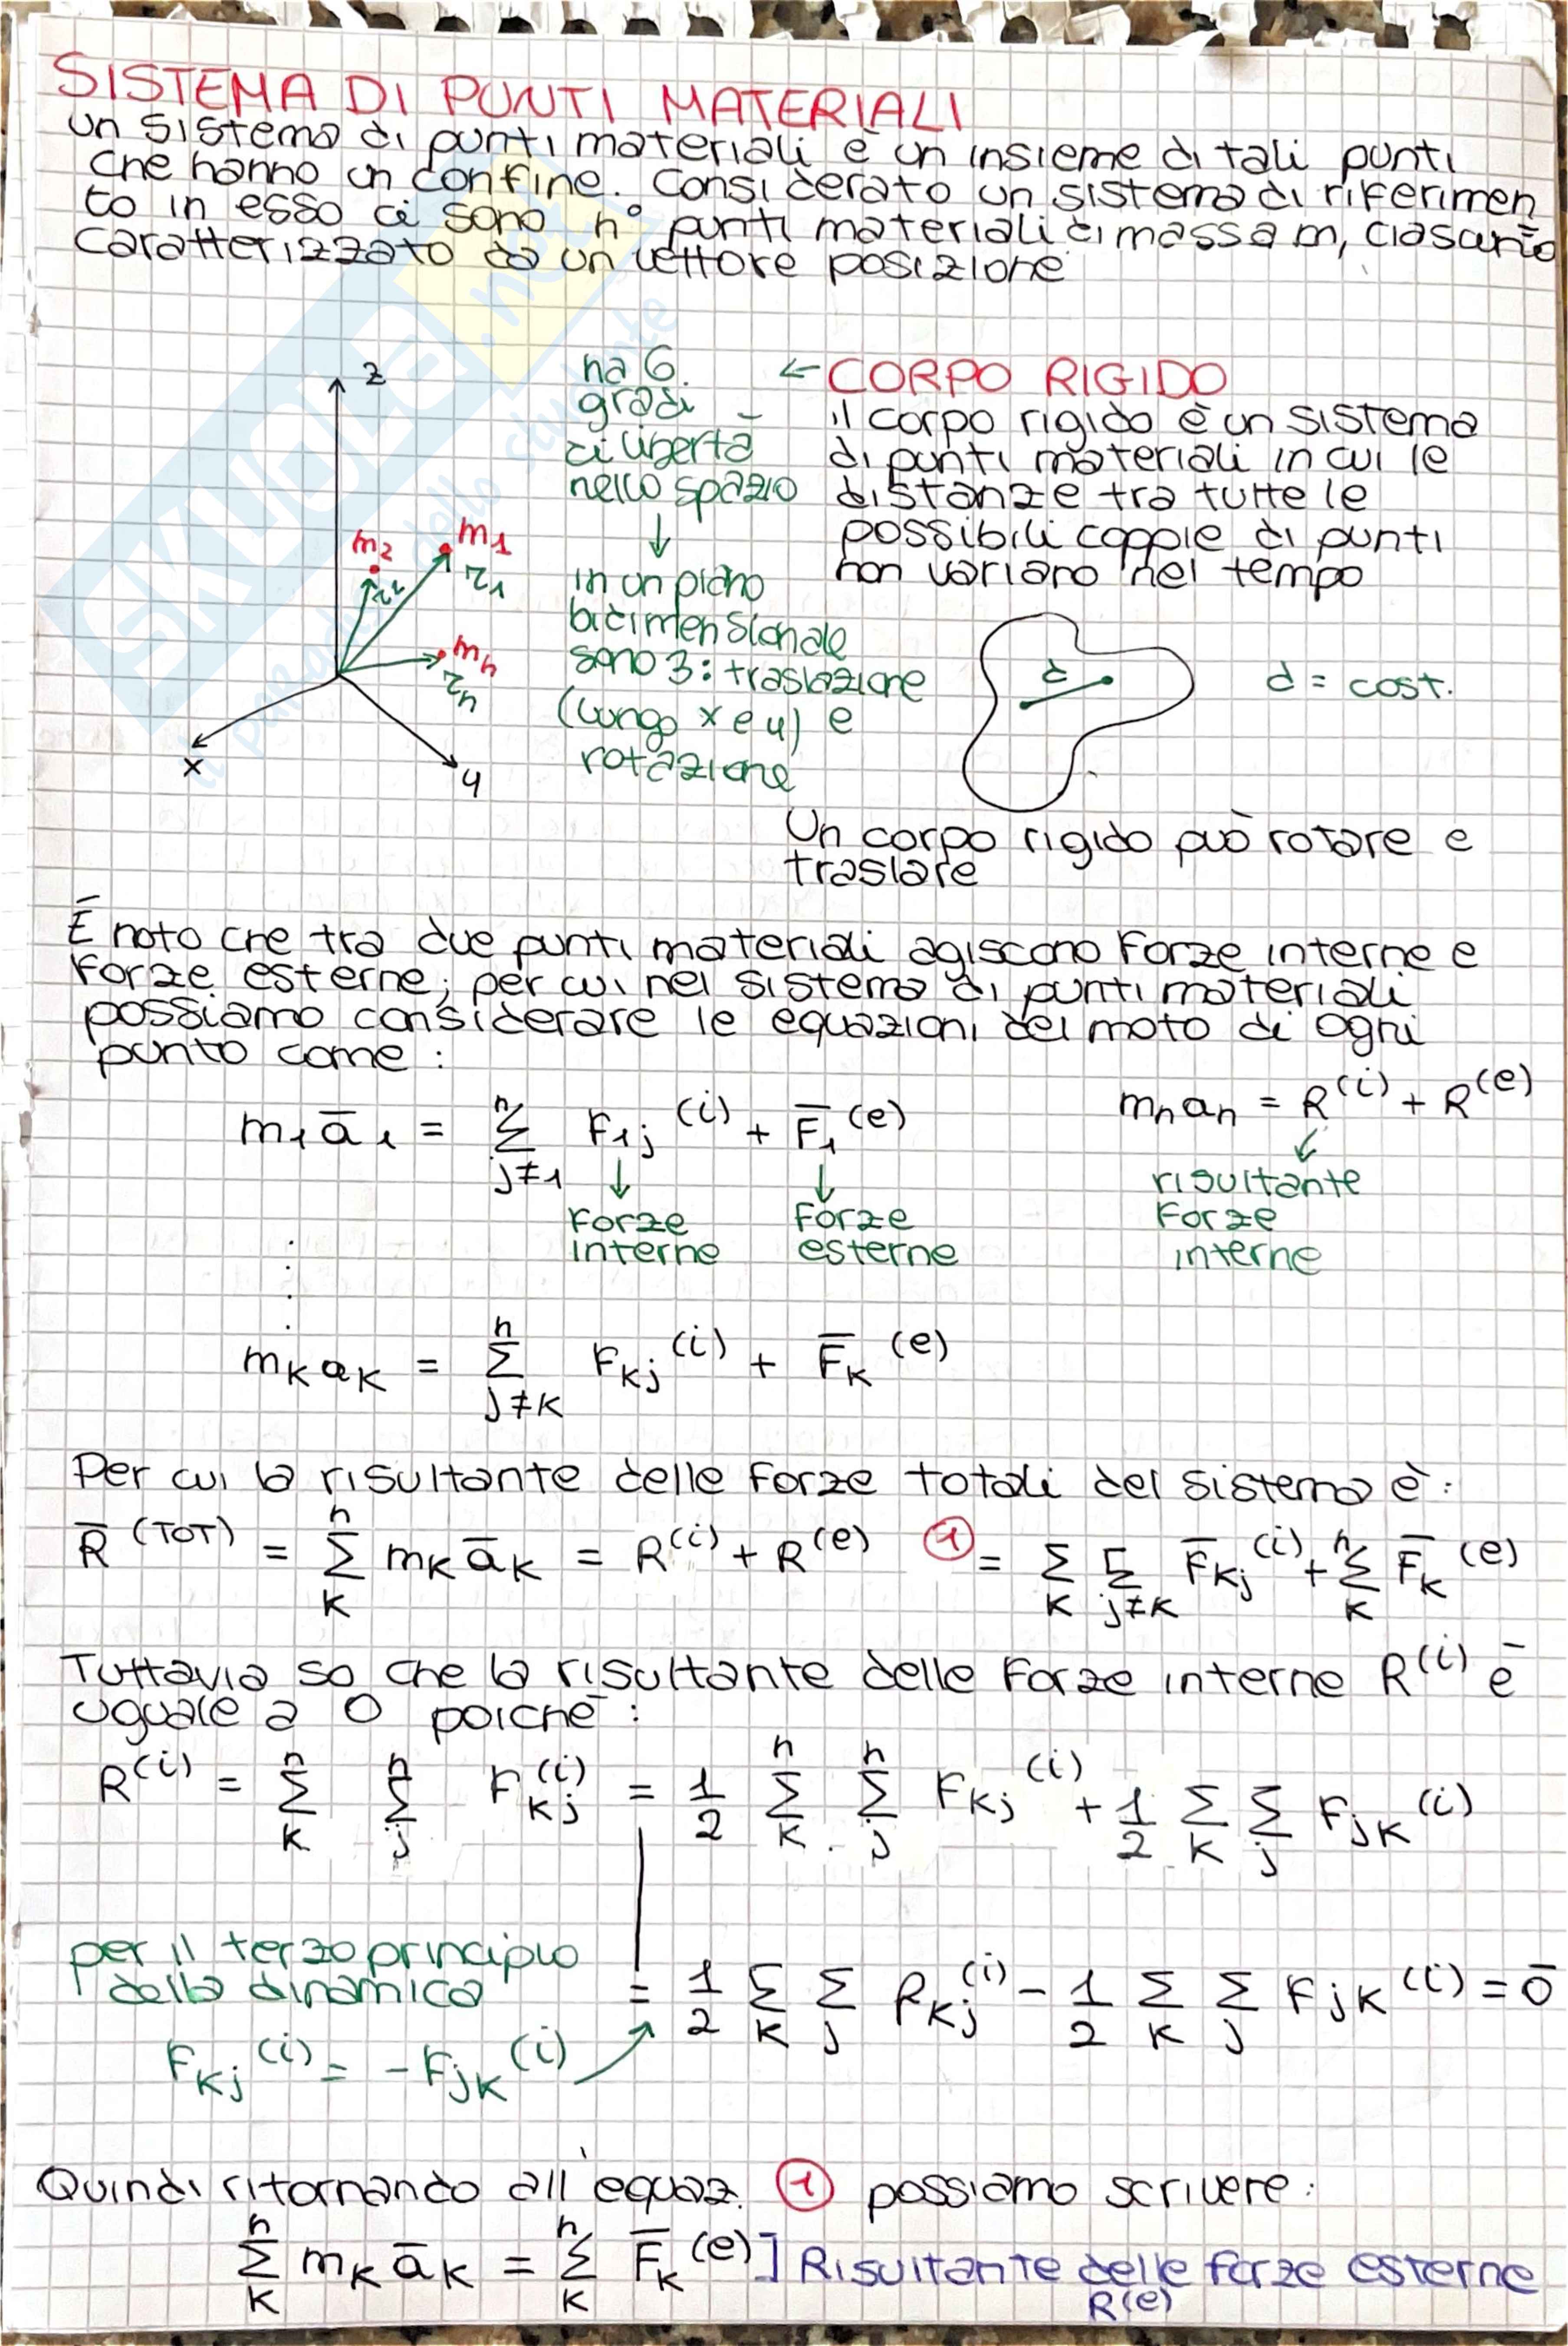 SISTEMA DI PUNTI MATERIALI
un sistema di punti materiali è un insieme di tali punti
che hanno un confine. Considerato un sistema di riferimen
to in esso ci sono n° punti materiali di massa m, ciascuno
caratterizzato da un vettore posizione
z
m2
r2
m1
r1
mn
rn
x
y
ha 6
gradi
di libertà
nello spazio
↓
in un piano
bidimensionale
sono 3: traslazione
(lungo x e y) e
rotazione
← CORPO RIGIDO
il corpo rigido è un sistema
di punti materiali in cui le
distanze tra tutte le
possibili coppie di punti
non variano nel tempo
d
d = cost.
Un corpo rigido può rotare e
traslare
È noto che tra due punti materiali agiscono Forze interne e
Forze esterne; per cui nel sistema di punti materiali
possiamo considerare le equazioni del moto di ogni
punto come:
m₁ a̅₁ = Σⁿ_{j≠1} F₁j^(i) + F̅₁^(e)
↓ Forze interne
↓ Forze esterne
mₙaₙ = R^(i) + R^(e)
↙ risultante
Forze
interne
⋮
mK aK = Σⁿ_{j≠K} FKj^(i) + F̅K^(e)
Per cui la risultante delle Forze totali del sistema è:
R̅^(TOT) = Σⁿ_K mK a̅K = R^(i) + R^(e) ① = Σ_K Σ_{j≠K} F̅Kj^(i) + Σⁿ_K F̅K^(e)
Tuttavia so che la risultante delle Forze interne R^(i) è
uguale a 0 poiché:
R^(i) = Σⁿ_K Σⁿ_j FKj^(i) = 1/2 Σⁿ_K Σⁿ_j FKj^(i) + 1/2 Σ_K Σ_j FjK^(i)
per il terzo principio
della dinamica
FKj^(i) = -FjK^(i)
= 1/2 Σ_K Σ_j FKj^(i) - 1/2 Σ_K Σ_j FjK^(i) = 0̅
Quindi ritornando all'equaz. ① possiamo scrivere:
Σⁿ_K mK a̅K = Σⁿ_K F̅K^(e) ] Risultante delle forze esterne
R(e)
SKUOLA.net
il paradiso dello studente